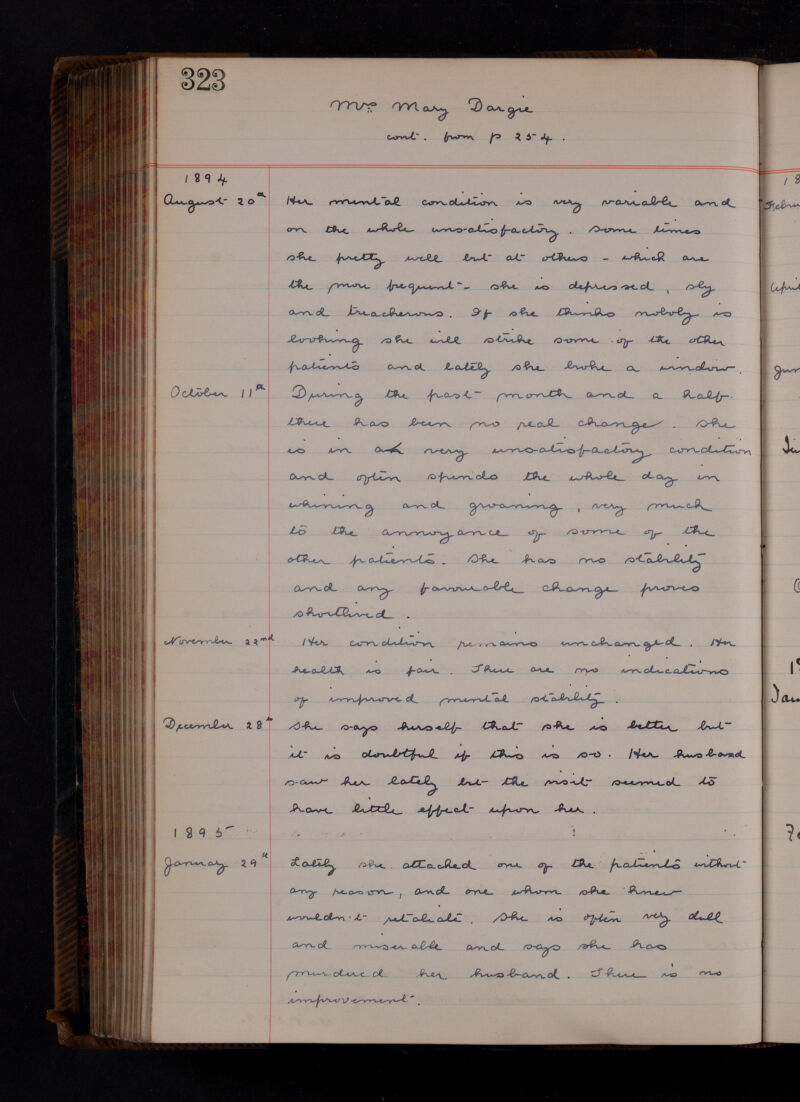 323
Mrs Mary Dargie
cont. from p 254.
1894
August 20th Her mental condition is very variable and
on the whole unsatisfactory. Some times
she pretty well but at others - which are
the more frequent - she is depressed, sly
and treacherous. If she thinks nobody is
looking she will strike some of the other
patients and lately she broke a window.
October 11th During the past month and a half
there has been no real change. She
is in a very unsatisfactory condition
and often spends the whole day in
whining and groaning, very much
to the annoyance of some of the
other patients. She has no stability
and any favourable change proves
shortlived.
November 22nd Her condition remains unchanged. Her
health is fair. There are no indications
of improved mental stability.
December 28th She says herself that she is better but
it is doubtful if this is so. Her husband
saw her lately but the visit seemed to
have little effect upon her.
1895
January 29th Lately she attacked one of the patients without
any reason, and one whom she knew
wouldn't retaliate. She is often very dull
and miserable and says she has
murdered her husband. There is no
improvement.